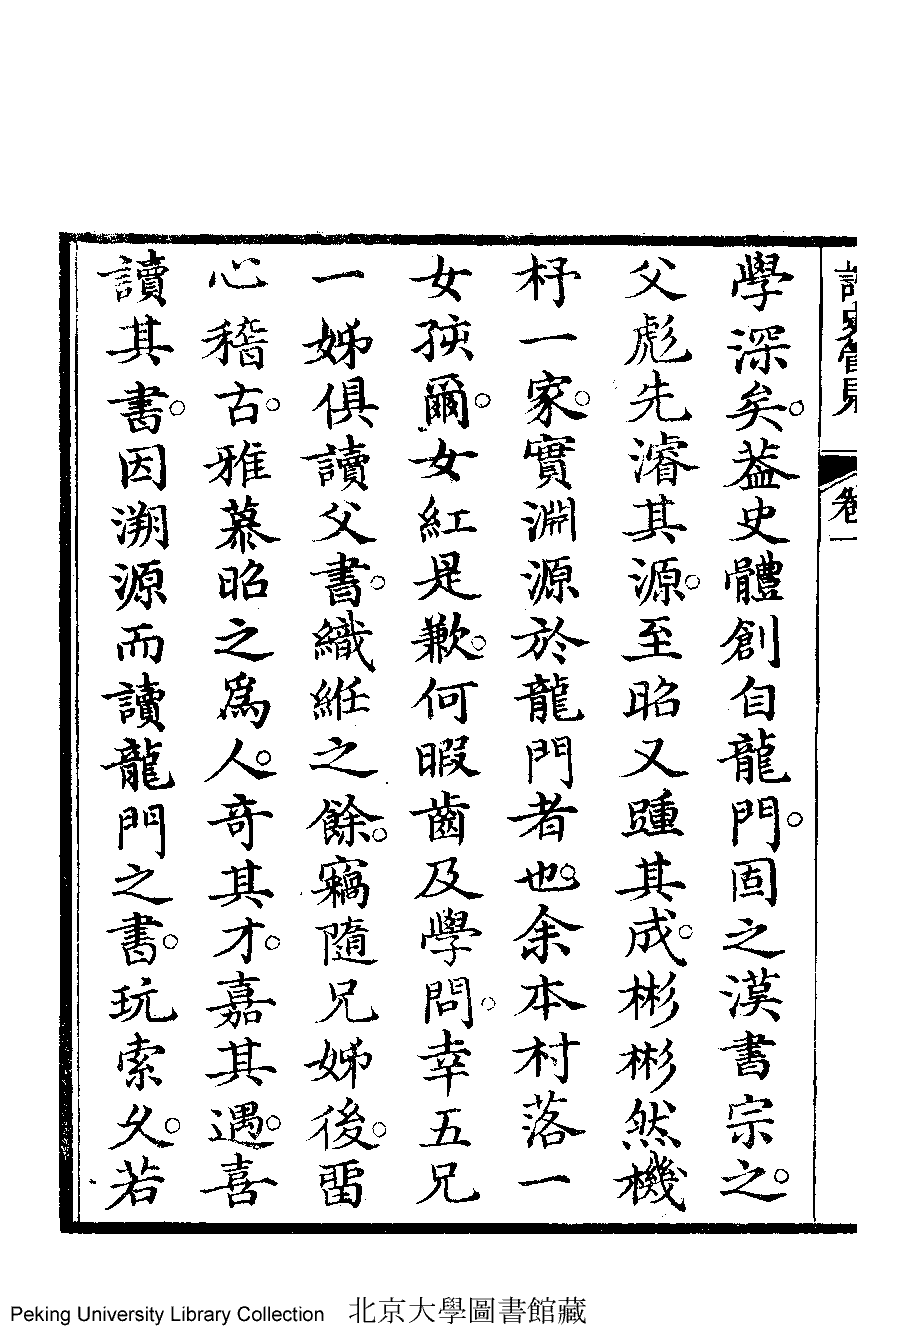 卷一
學深矣。葢史體創自龍門。固之漢書宗之。
父彪先濬其源。至昭又踵其成。彬彬然機
杼一家。實淵源於龍門者也。余本村落一
女孩爾。女紅是歉。何暇齒及學問。幸五兄
一姊俱讀父書。織絍之餘。竊隨兄姊後。畱
心稽古。雅慕昭之爲人。奇其才。嘉其遇。喜
讀其書。因溯源而讀龍門之書。玩索久。若
Peking University Library Collection 北京大學圖書館藏